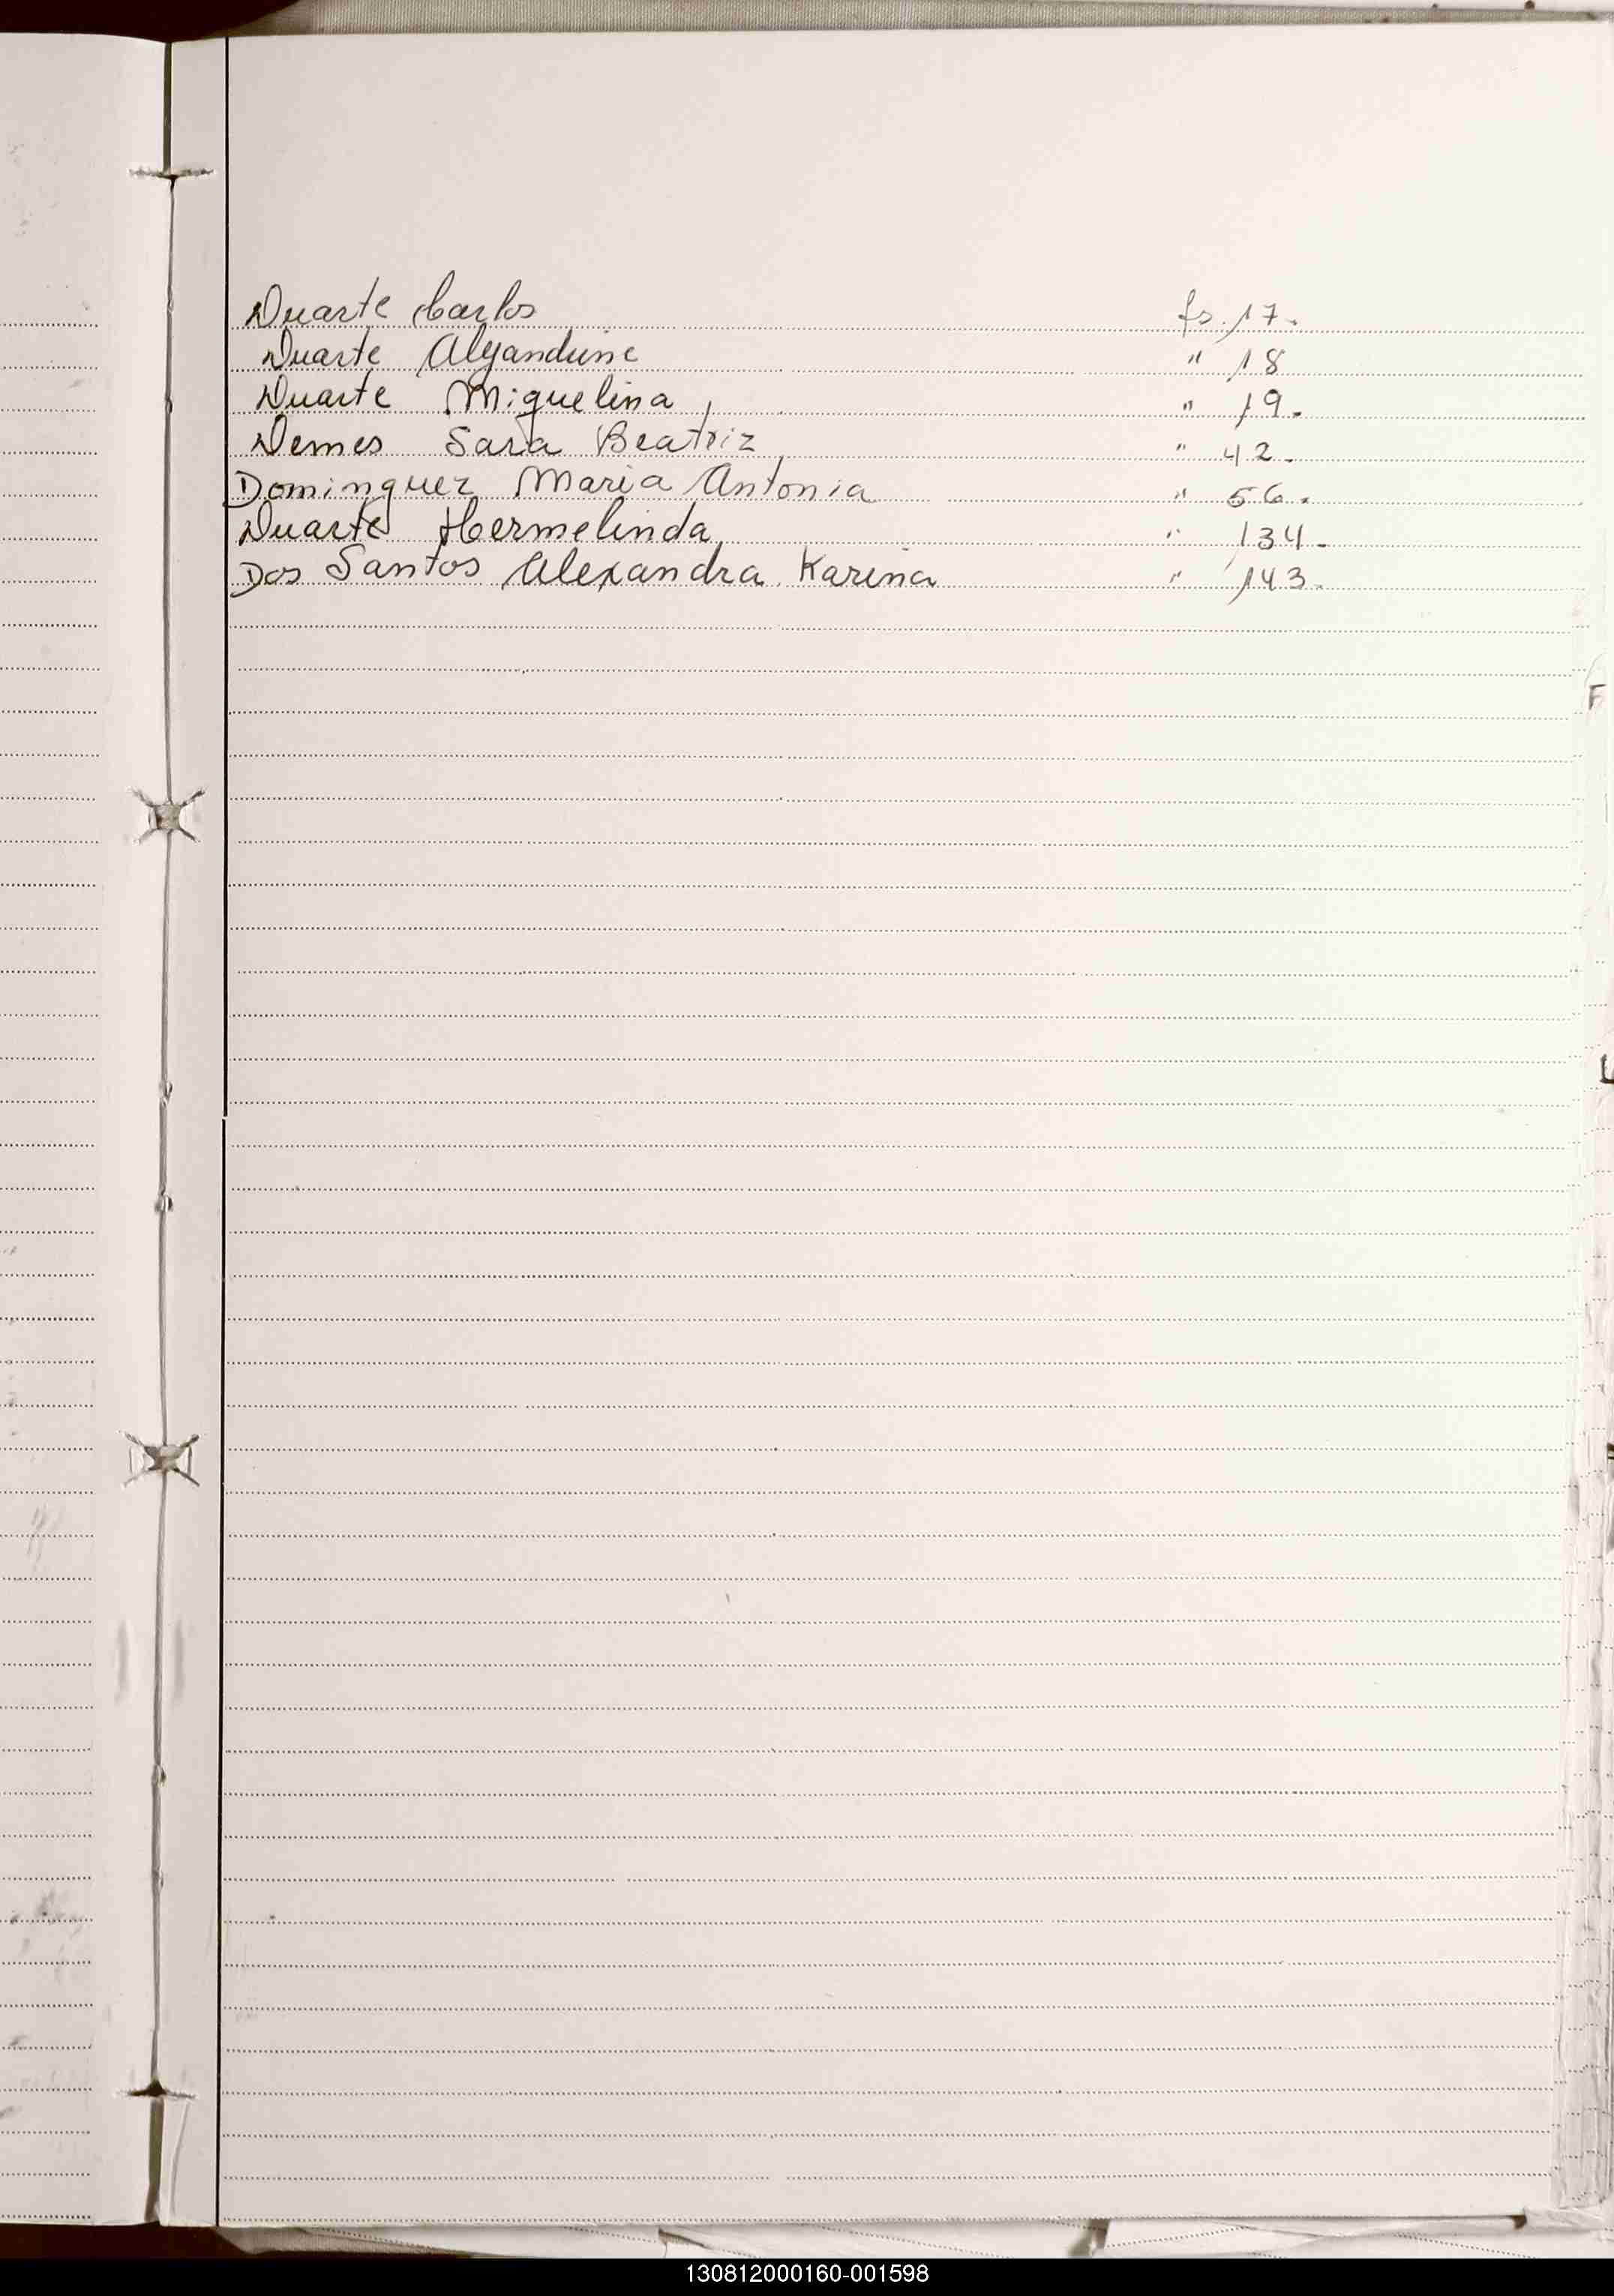 Duarte Carlos fs. 17.
Duarte " 18
Duarte Miguelina " 19.
Demes Sara Beatriz " 42.
Dominguez Maria Antonia " 56.
Duarte Hermelinda " 134.
Dos Santos Alexandra Karina " 143.
F
L
130812000160-001598